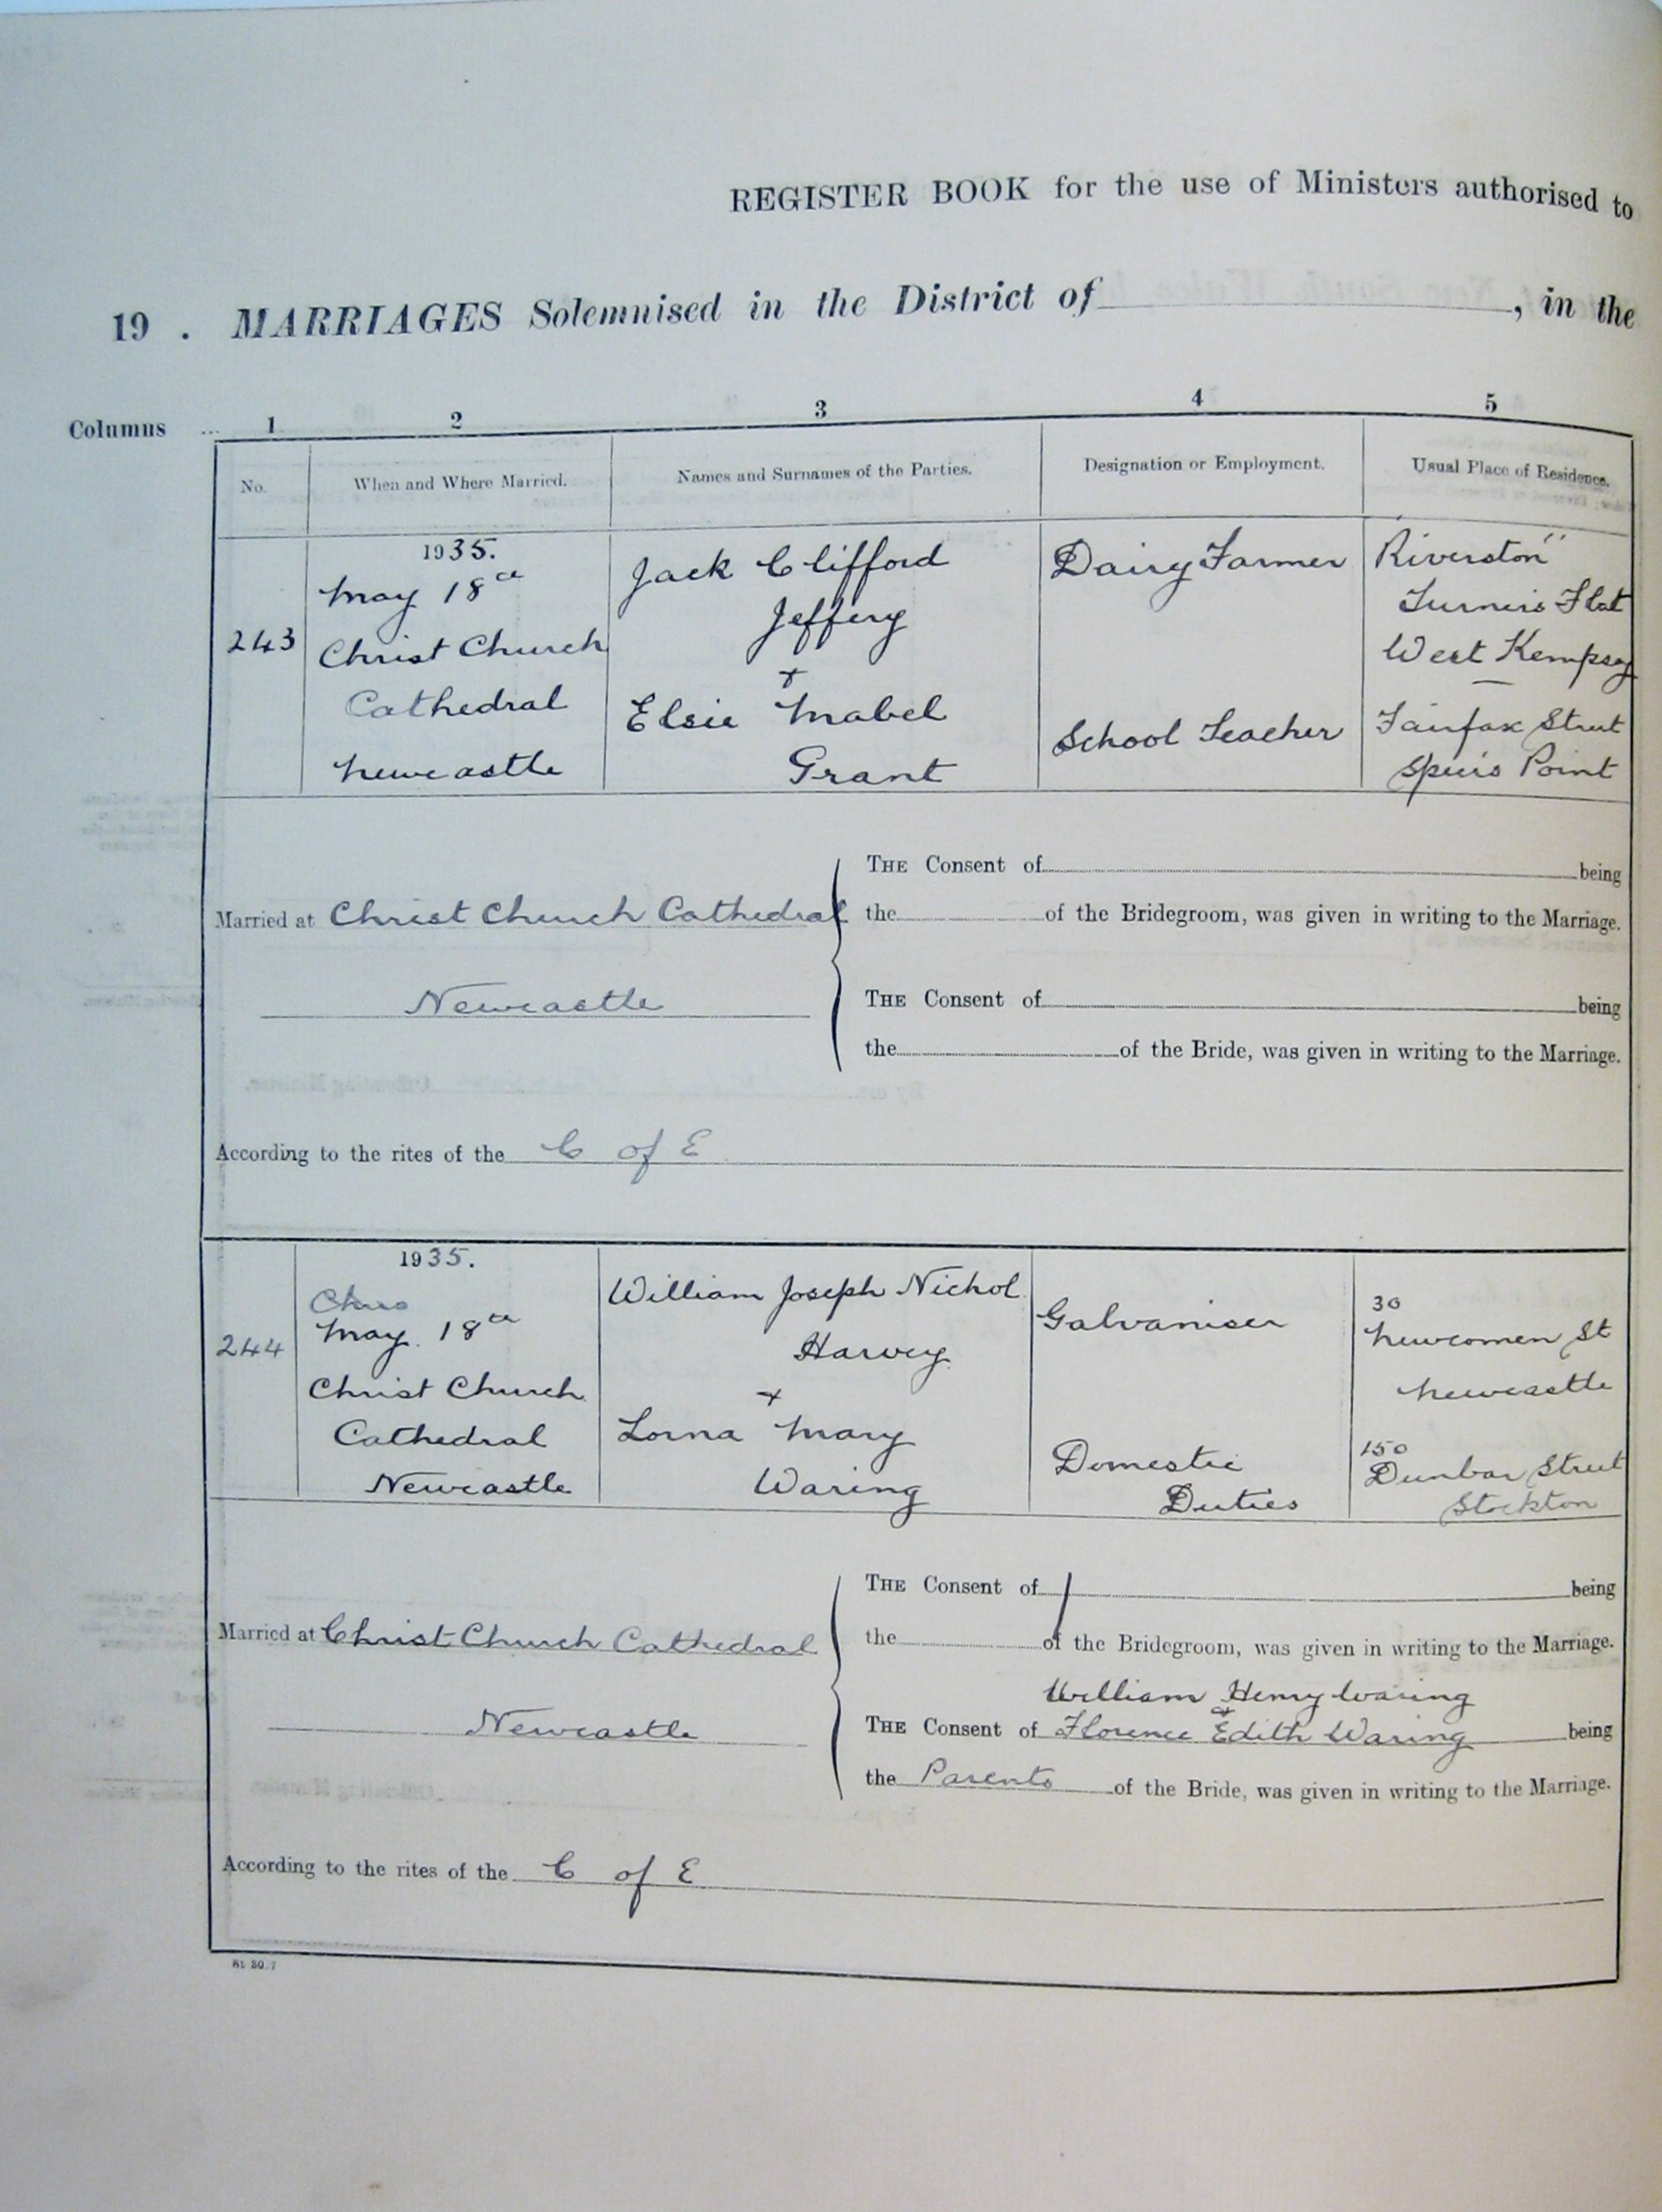 REGISTER BOOK for the use of Ministers authorised to
19 . MARRIAGES Solemnised in the District of , in the
Columns ... 1 2 3 4 5
No. When and Where Married. Names and Surnames of the Parties. Designation or Employment. Usual Place of Residence.
243
1935.
May 18th
Christ Church
Cathedral
Newcastle
Jack Clifford
Jeffery
+
Elsie Mabel
Grant
Dairy Farmer
School Teacher
"Riverston"
Turners Flat
West Kempsey
Fairfax Street
Speirs Point
Married at Christ Church Cathedral
Newcastle
THE Consent of being
the of the Bridegroom, was given in writing to the Marriage.
THE Consent of being
the of the Bride, was given in writing to the Marriage.
According to the rites of the C of E
244
1935.
Chris
May. 18th
Christ Church
Cathedral
Newcastle
William Joseph Nichol
Harvey
+
Lorna Mary
Waring
Galvaniser
Domestic
Duties
30
Newcomen St
Newcastle
150
Dunbar Street
Stockton
Married at Christ Church Cathedral
Newcastle
THE Consent of being
the of the Bridegroom, was given in writing to the Marriage.
William Henry Waring
+
THE Consent of Florence Edith Waring being
the Parents of the Bride, was given in writing to the Marriage.
According to the rites of the C of E